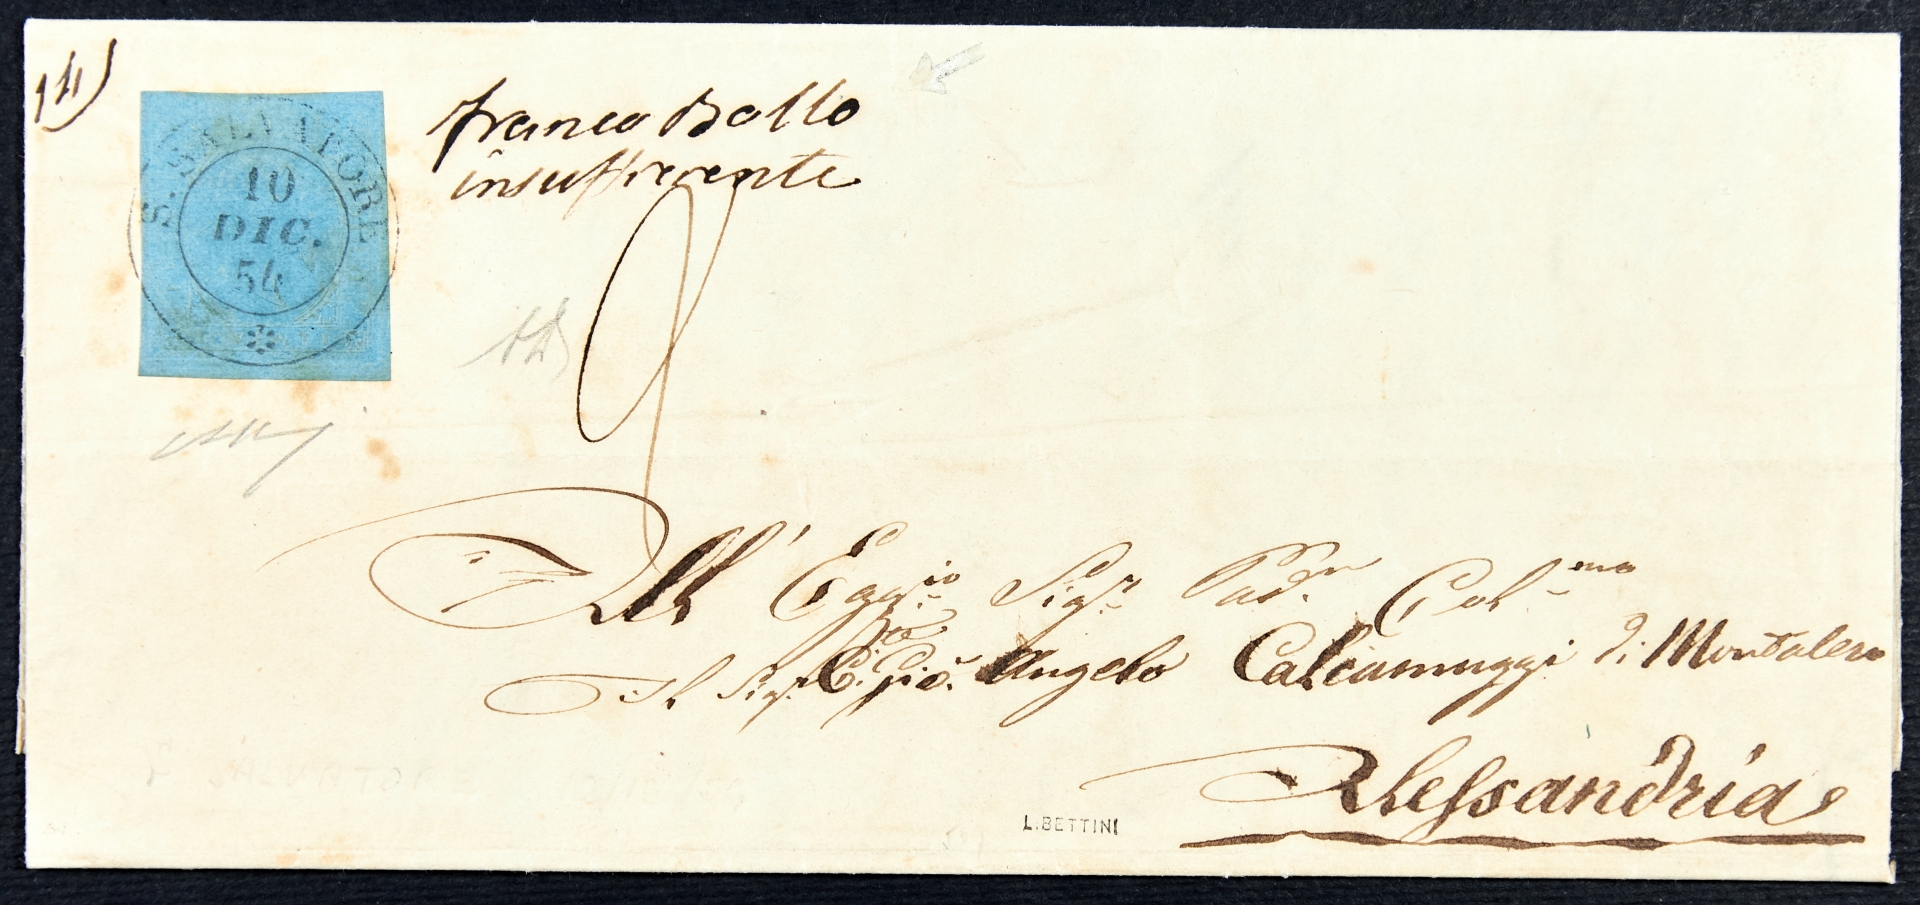 S. SALVATORE
10
DIC.
54
franco Bollo
insufficiente
All' Egg.io Sig.r Pad.n Col.mo
Il Sig.r C.te Gio. Angelo Calcamuggi di Montalero
Alessandria
S SALVATORE
L. BETTINI